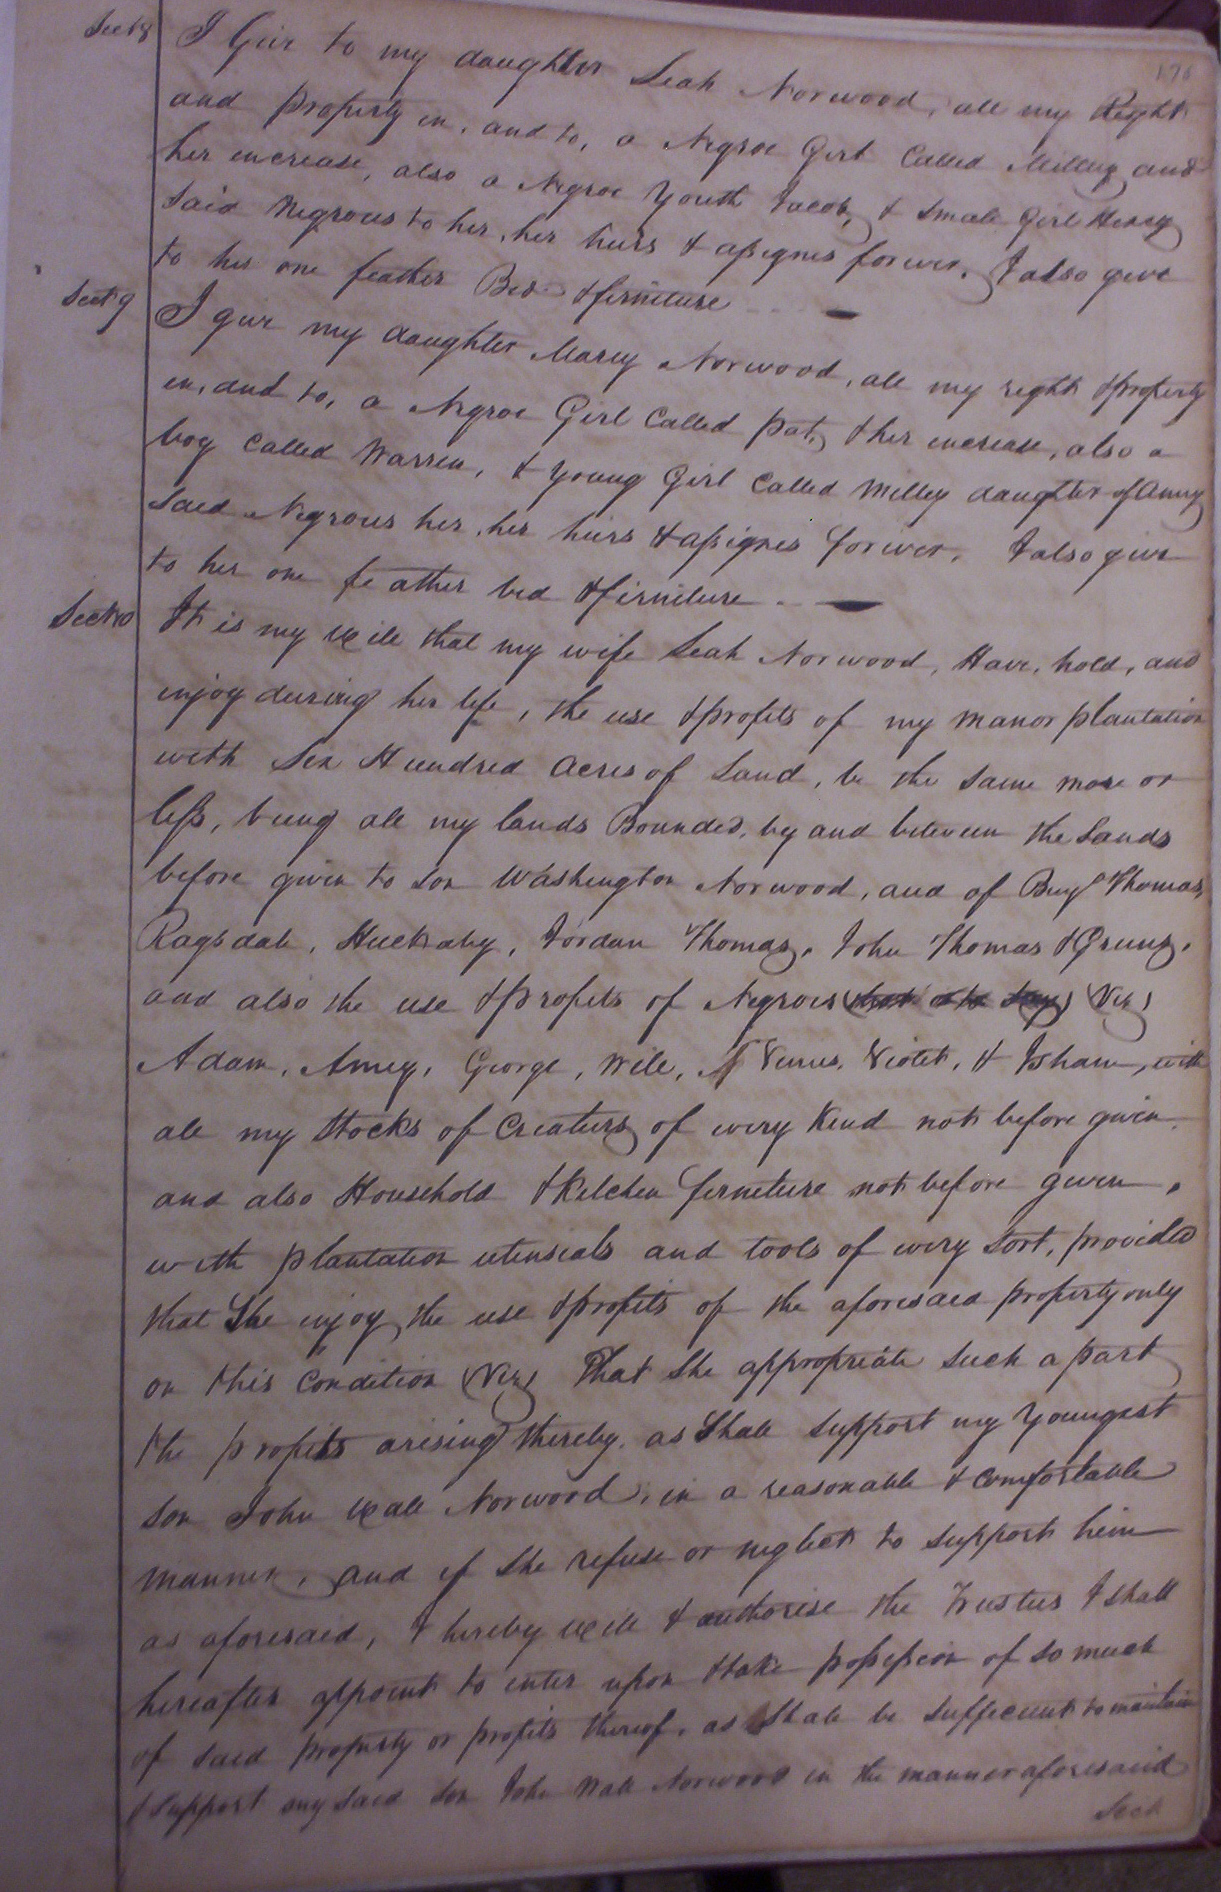 176
Sect 8 I Give to my daughter Leah Norwood, all my Right
and property in, and to, a Negroe Girl Called Milley and
her increase, also a Negroe Youth Jacob, & Small Girl
said Negroes to her, her heirs & assignes forever, I also give
to her one feather Bed & furniture
Sect 9 I give my daughter Marey Norwood, all my right & property
in, and to, a Negroe Girl Called Pat, & her increase, also a
boy Called Warren, & young Girl Called Milley daughter of Amey
said Negroes her, her heirs & assignes forever, I also give
to her one feather bed & furniture
Sect 10 It is my will that my wife Leah Norwood, Have, hold, and
enjoy during her life, the use & profits of my Manor plantation
with Six Hundred Acres of Land, be the same more or
less, being all my lands Bounded, by and between the Lands
before given to son Washington Norwood, and of Benj Thomas,
Ragsdale, Huckaby, Jordan Thomas, John Thomas &
and also the use & profits of Negroes (that is to say) (Viz)
Adam, Amey, George, Will, Venus, Violet, & Isham, with
all my Stocks of Creatures of every Kind not before given
and also Household & Kitchen furniture not before given,
with plantation utensials and tools of every Sort, provided
that She enjoy the use & profits of the aforesaid property only
on this Condition (Viz) That She appropriate Such a part
the profits arising thereby, as Shall Support my Youngest
son John Wall Norwood, in a reasonable & Comfortable
manner, and if She refuse or neglect to Support him
as aforesaid, I hereby will & authorise the Trustees I shall
hereafter appoint to enter upon & take possession of so much
of said property or profits thereof, as Shall be Sufficient to maintain
& Support my said son John Wall Norwood in the manner aforesaid
Sect